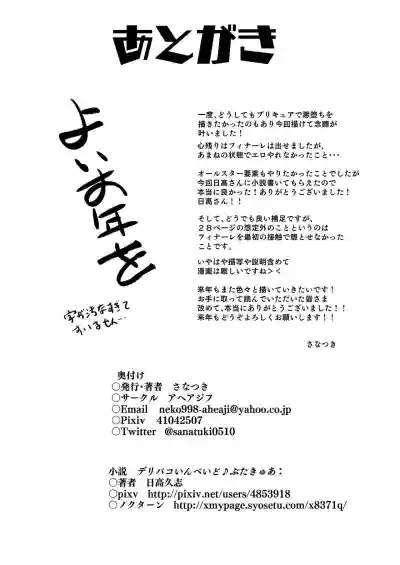 あとがき
よいお年を
字が汚なすぎて
すいません…
一度、どうしてもプリキュアで悪堕ちを
描きたかったのもあり今回描けて念願が
叶いました！
心残りはフィナーレは出せましたが、
あまねの状態でエロやれなかったこと・・・
オールスター要素もやりたかったことでしたが
今回日高さんに小説書いてもらえたので
本当に良かった！ありがとうございました！
日高さん！！
そして、どうでも良い補足ですが、
２８ページの想定外のことというのは
フィナーレを最初の接触で堕とせなかった
ことです。
いやはや描写や説明含めて
漫画は難しいですね＞＜
来年もまた色々と描いていきたいです！
お手に取って読んでいただいた皆さま
改めて、本当にありがとうございました！！
来年もどうぞよろしくお願いします！！
さなつき
奥付け
○発行・著者　さなつき
○サークル　アヘアジフ
○Email　neko998-aheaji@yahoo.co.jp
○Pixiv　41042507
○Twitter　@sanatuki0510
小説　デリバコいんべいど♪ぷたきゅあ：
○著者　日高久志
○pixv　http://pixiv.net/users/4853918
○ノクターン　http://xmypage.syosetu.com/x8371q/